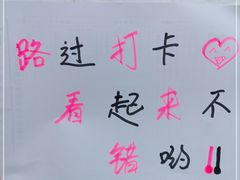 路过打卡
看起来不
错哟!!